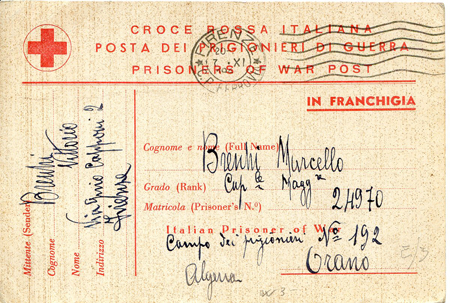 CROCE ROSSA ITALIANA
POSTA DEI PRIGIONIERI DI GUERRA
PRISONERS OF WAR POST
FIRENZE
XI
IN FRANCHIGIA
Mittente (Sender)
Cognome
Nome Vittorio
Indirizzo Via Gino Capponi 2
Firenze
Cognome e nome (Full Name) Marcello
Grado (Rank) Cap.le Magg.
Matricola (Prisoner's N.º) 24970
Italian Prisoner of War
Campo dei prigionieri Nº 192
Orano
Algeria